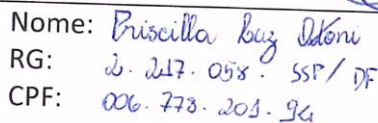 Nome: Priscilla Luz Ottoni
RG: 2.217.058. SSP/DF
CPF: 006.773.201.94